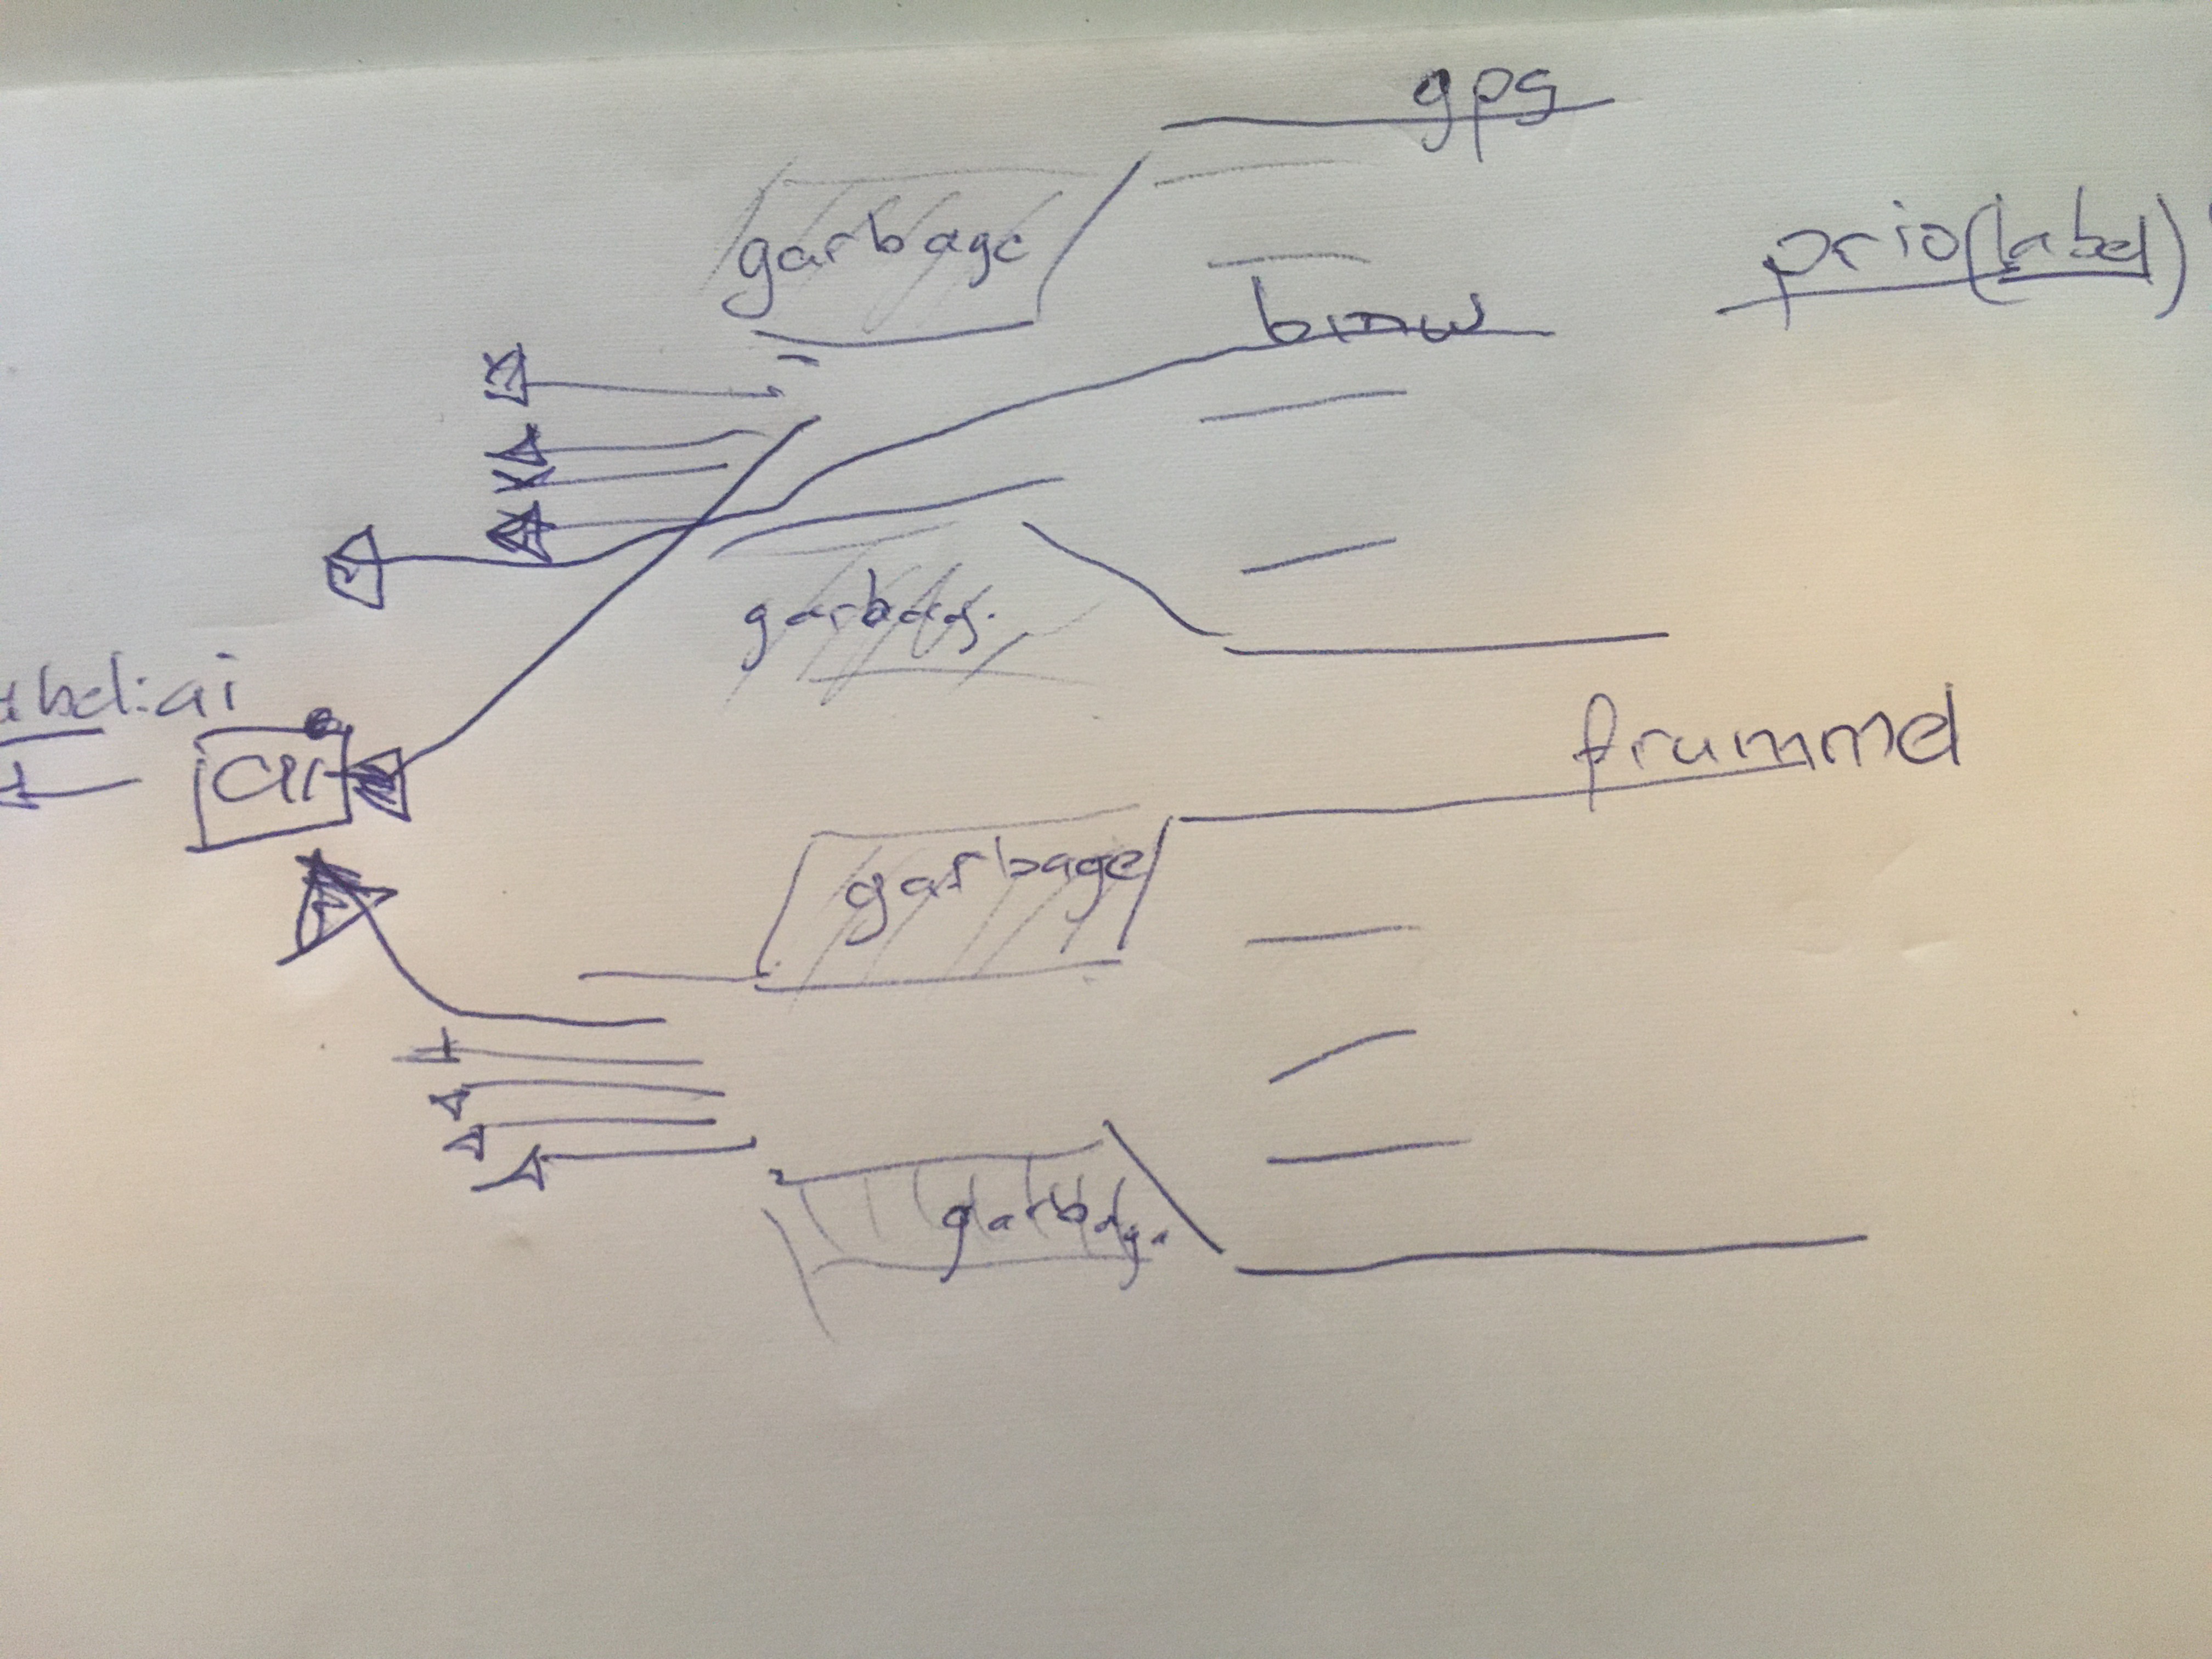 gps
garbage
prio(label)
bmw
garbag.
abel:ai
ai
frummel
garbage
garbag.